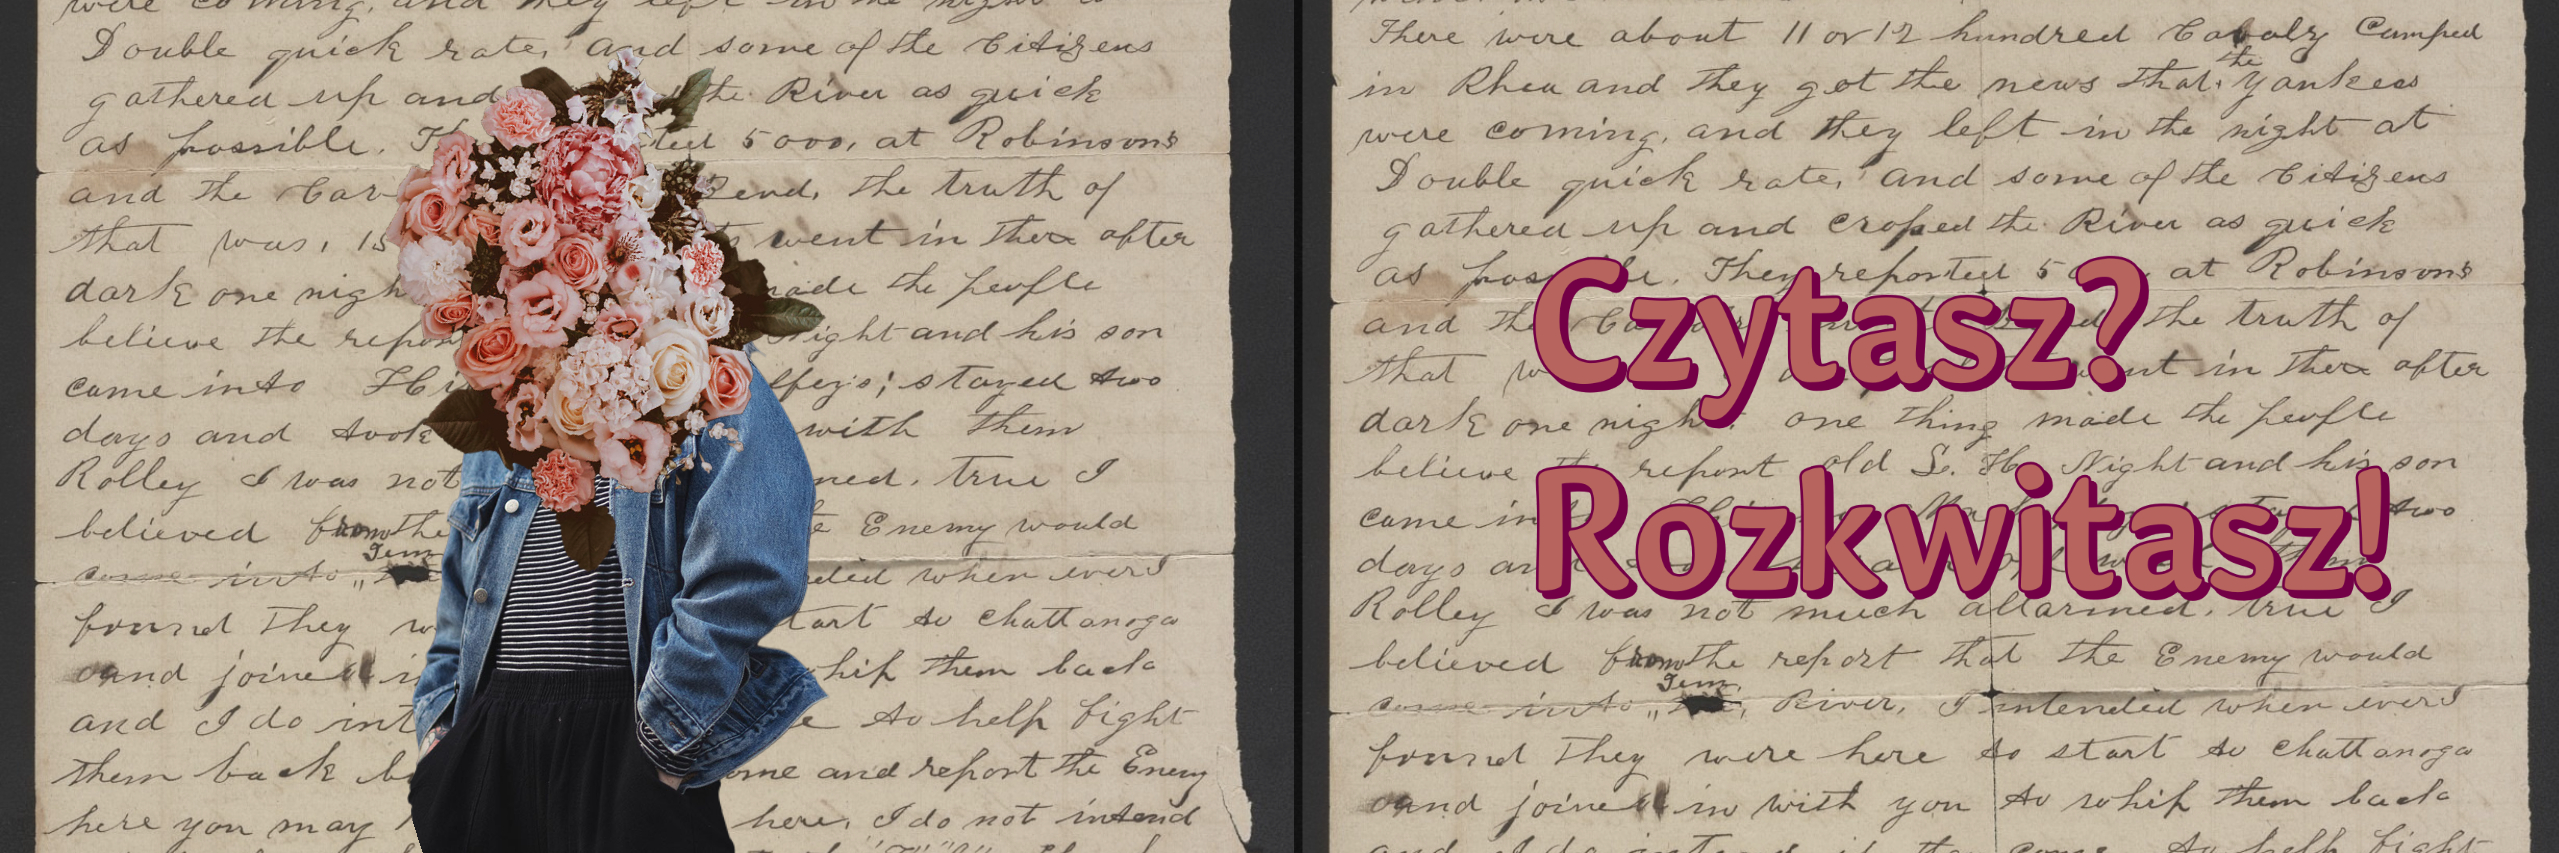 were coming, and they left in the night a
Double quick rate, and some of the Citizens
gathered up and the River as quick
as possible. Th ted 5000, at Robinsons
and the Car Bend, the truth of
that was, 15 went in there after
dark one nigh made the people
believe the report Night and his son
came into Hi lfey's; stayed two
days and took with them
Rolley I was not med, true I
believed from the e Enemy would
Tenn
come into " nded when ever I
found they w tart to Chattanoga
and joined in whip them back
and I do int e to help fight
them back b ome and report the Enemy
here you may here, I do not intend
There were about 11 or 12 hundred Cavalry Camped
in Rhea and they got the news that the Yankees
were coming, and they left in the night at
Double quick rate, and some of the Citizens
gathered up and Croped the River as quick
as possible. They reported 5 at Robinsons
and the the truth of
that w went in there after
dark one night. one thing made the people
believe the report old S. H. Night and his son
came in two
days an them
Rolley I was not much allarmed, true I
believed from the report that the Enemy would
Tenn,
come into " River, I intended when ever I
found they were here to start to Chattanoga
and joined in with you to whip them back
and I do intend if the come to help fight
Czytasz?
Rozkwitasz!